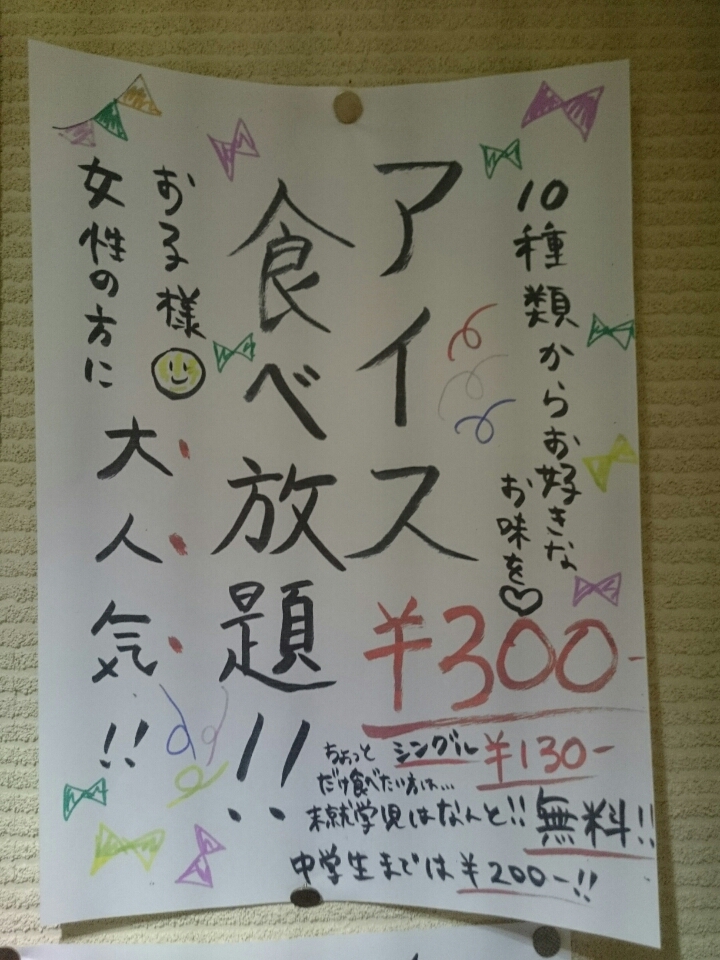 10種類からお好きな
お味を♡
アイス
食べ放題!!
¥300-
お子様
女性の方に
大人気!!
ちょっと
だけ食べたい方は…
シングル ¥130-
未就学児はなんと!! 無料!!
中学生までは¥200-!!